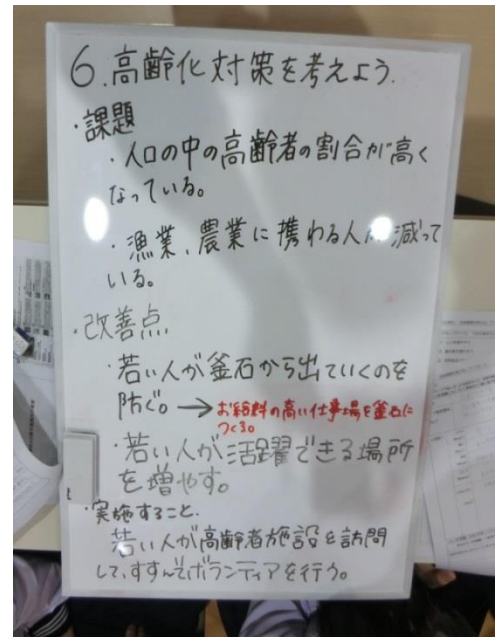 6.高齢化対策を考えよう.
・課題
・人口の中の高齢者の割合が高く
なっている。
・漁業、農業に携わる人が減って
いる。
・改善点
・若い人が釜石から出ていくのを
防ぐ。→お給料の高い仕事場を釜石に
つくる。
・若い人が活躍できる場所
を増やす。
・実施すること.
若い人が高齢者施設を訪問
して、すすんでボランティアを行う。